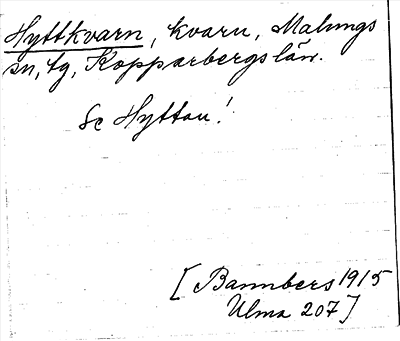 Hyttkvarn, kvarn, Malungs
sn, tg, Kopparbergs län.
Se Hyttan!
[Bannbers 1915
Ulma 207]